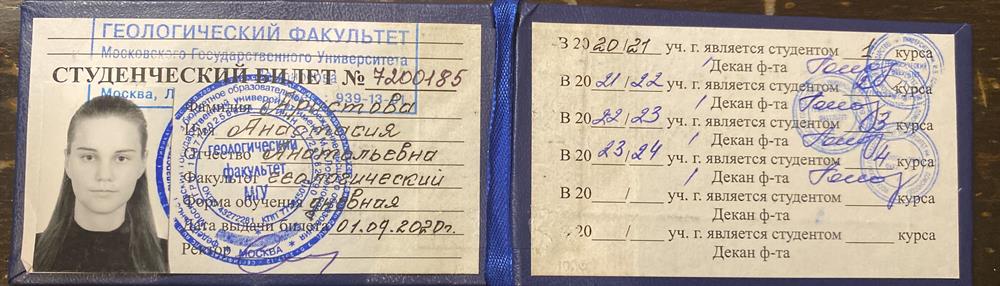 ГЕОЛОГИЧЕСКИЙ ФАКУЛЬТЕТ
Московского Государственного Университета
СТУДЕНЧЕСКИЙ БИЛЕТ № 7200185
Москва, Л 939-13-01
Фамилия
Имя Анастасия
Отчество Анатольевна
Факультет геологический
Форма обучения дневная
Дата выдачи билета 01.09.2020г.
Ректор
геологический
факультет
МГУ
МОСКВА
В 20 20/21 уч. г. является студентом 1 курса
Декан ф-та
В 20 21/22 уч. г. является студентом курса
Декан ф-та
В 20 22/23 уч. г. является студентом 03 курса
Декан ф-та
В 20 23/24 уч. г. является студентом 04 курса
Декан ф-та
В 20 ___/___ уч. г. является студентом ______ курса
Декан ф-та
20 ___/___ уч. г. является студентом ______ курса
Декан ф-та